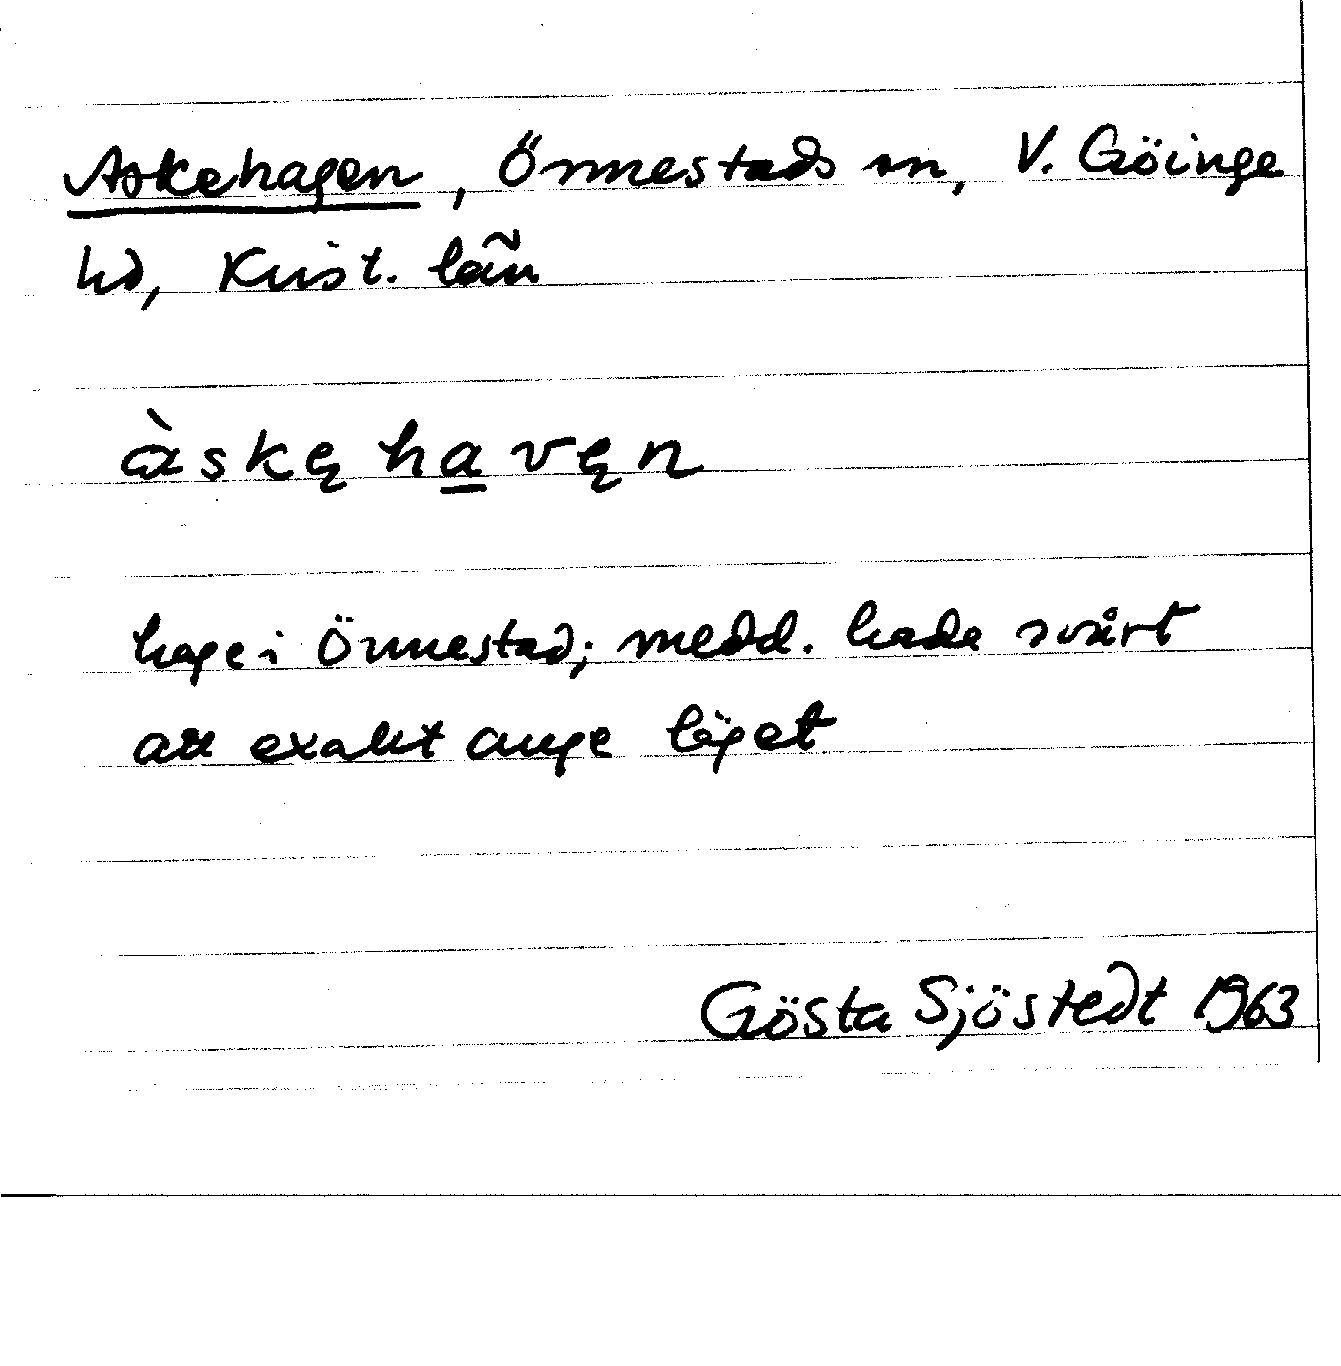 Askehagen, Önnestads sn, V. Göinge
hd, Krist. län
àskęha̲vęn
hage i Önnestad; medd. hade svårt
att exakt ange läget
Gösta Sjöstedt 1963